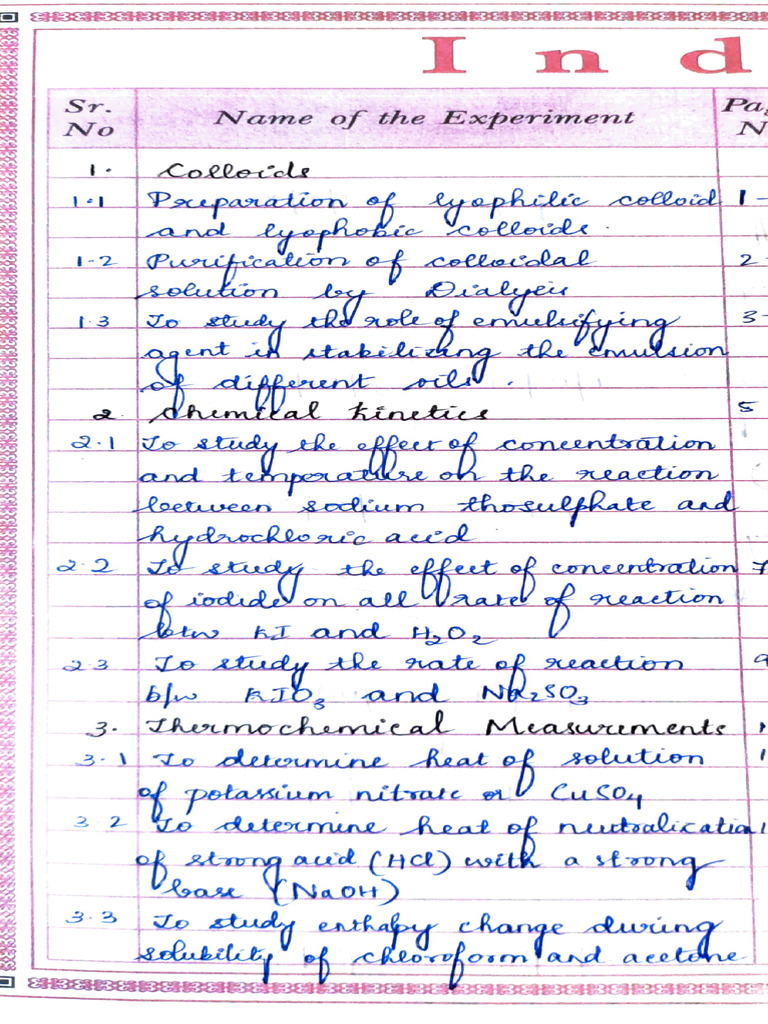 I n d
Sr. No Name of the Experiment Pa N
1. Colloids
1.1 Preparation of lyophilic colloid 1-
and lyophobic colloids.
1.2 Purification of colloidal 2-
solution by Dialysis
1.3 To study the role of emulsifying 3-
agent in stabilizing the emulsion
of different oils.
2. Chemical Kinetics 5
2.1 To study the effect of concentration
and temperature on the reaction
between sodium thosulphate and
hydrochloric acid
2.2 To study the effect of concentration 7
of iodide on all rate of reaction
btw KI and H₂O₂
2.3 To study the rate of reaction 9
b/w KIO₃ and Na₂SO₃
3. Thermochemical Measurements
3.1 To determine heat of solution
of potassium nitrate or CuSO₄
3.2 To determine heat of neutralication
of strong acid (HCl) with a strong
base (NaOH)
3.3 To study enthapy change during
solubility of chloroform and acetone